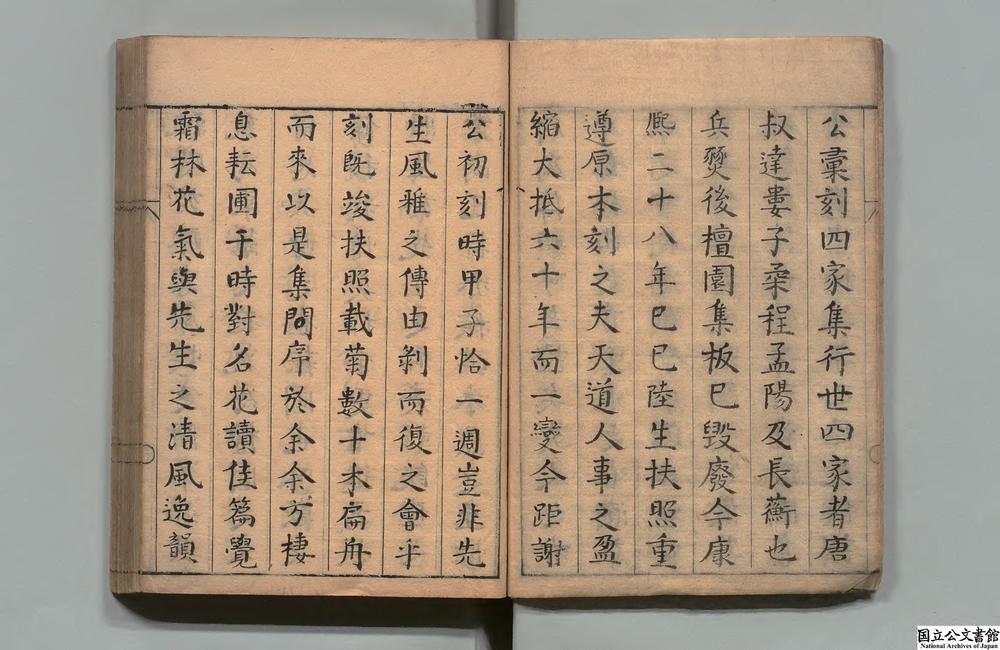 公彙刻四家集行世四家者唐
叔達婁子柔程孟陽及長蘅也
兵燹後檀園集板已毀廢今康
熈二十八年己巳陸生扶照重
遵原本刻之夫天道人事之盈
縮大抵六十年而一變今距謝
公初刻時甲子恰一週豈非先
生風雅之傳由剝而復之會乎
刻既竣扶照載菊數十本扁舟
而來以是集問序於余余方棲
息耘圃于時對名花讀佳篇覺
霜林花氣與先生之清風逸韻
国立公文書館
National Archives of Japan